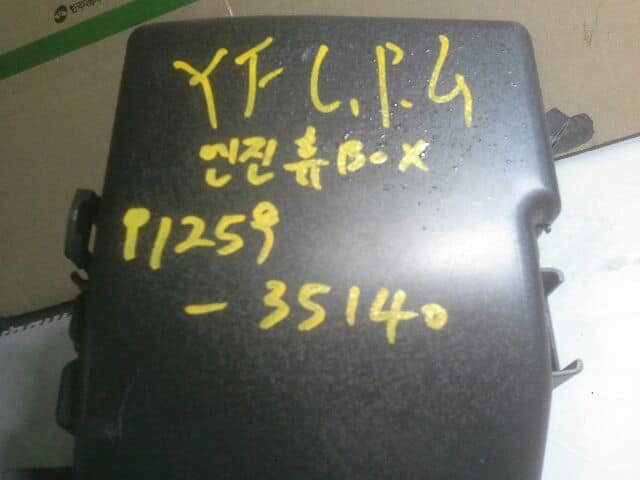 YF L.P.G
엔진휴 B-X
91259
-35140